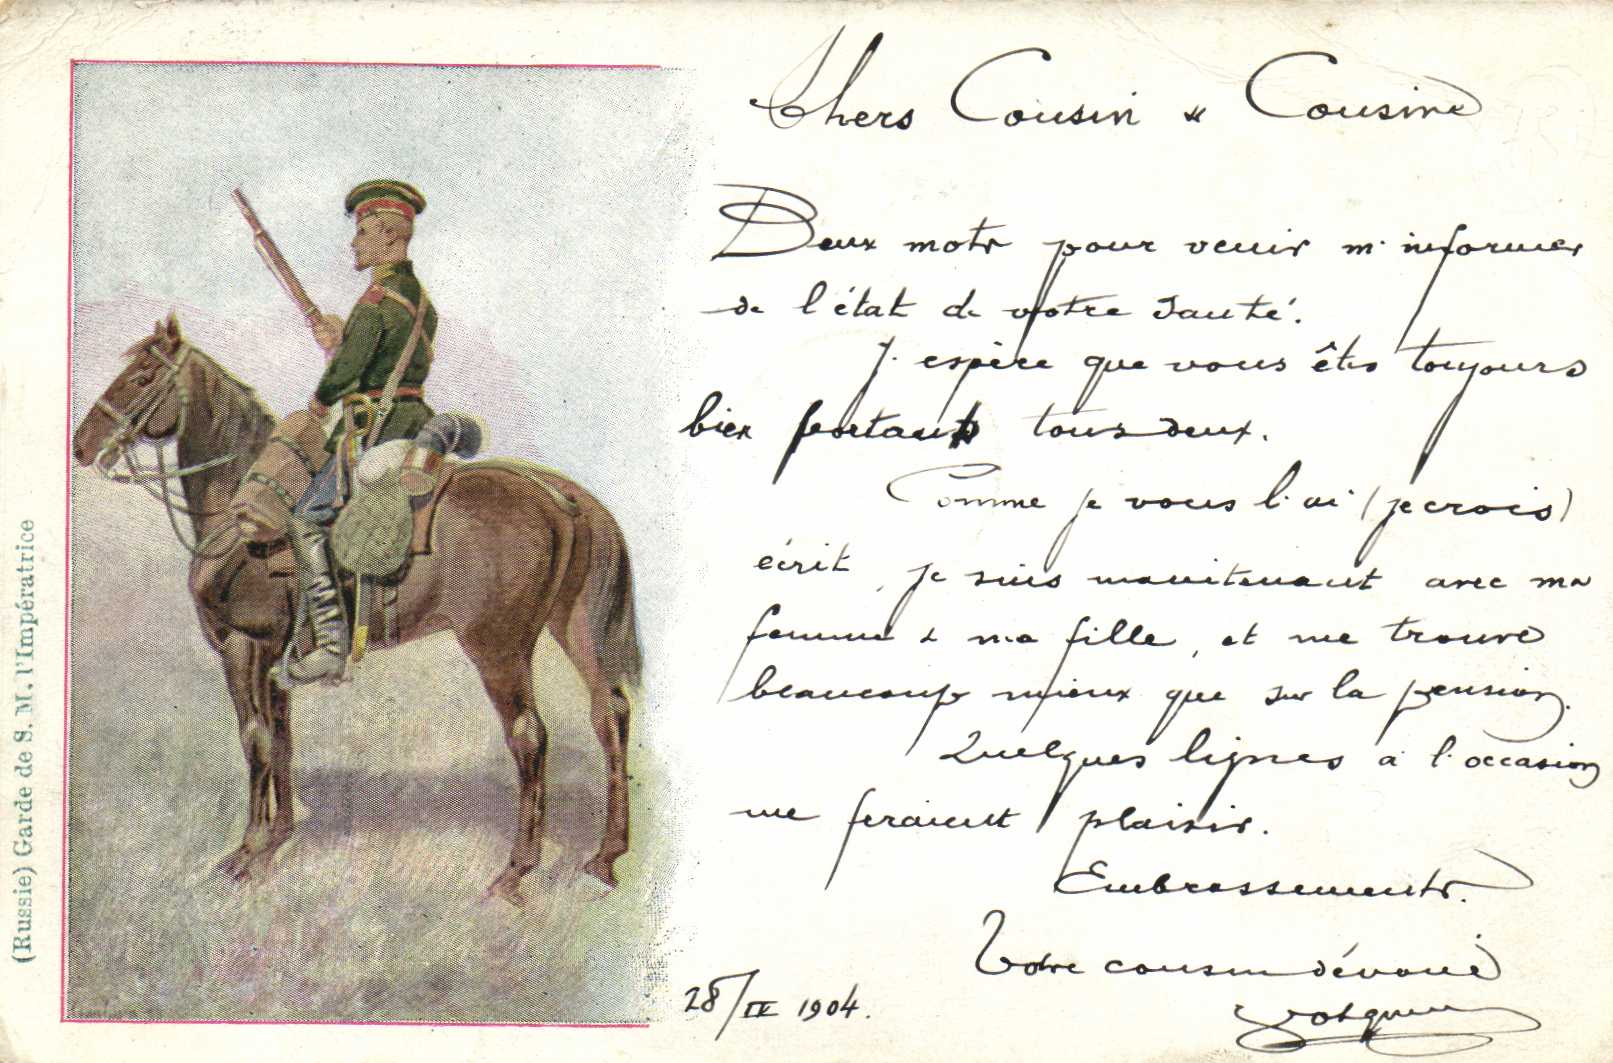 Chers Cousin & Cousine
Deux mots pour venir m'informer
de l'état de votre santé.
J'espère que vous êtes toujours
bien portants tous deux.
Comme je vous l'ai (je crois)
écrit, je suis maintenant avec ma
femme & ma fille, et me trouve
beaucoup mieux que sur la pension.
Quelques lignes à l'occasion
me feraient plaisir.
Embrassements.
Votre cousin dévoué
28/IV 1904.
(Russie) Garde de S. M. l'Impératrice